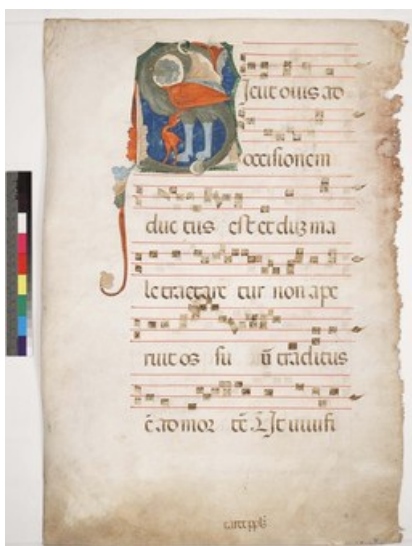 Sicut ovis ad
occisionem
duc tus est et duz ma
le tractare tur non ape
ruit os su ũ traditus
ē ad mor tē. Ut vivifi